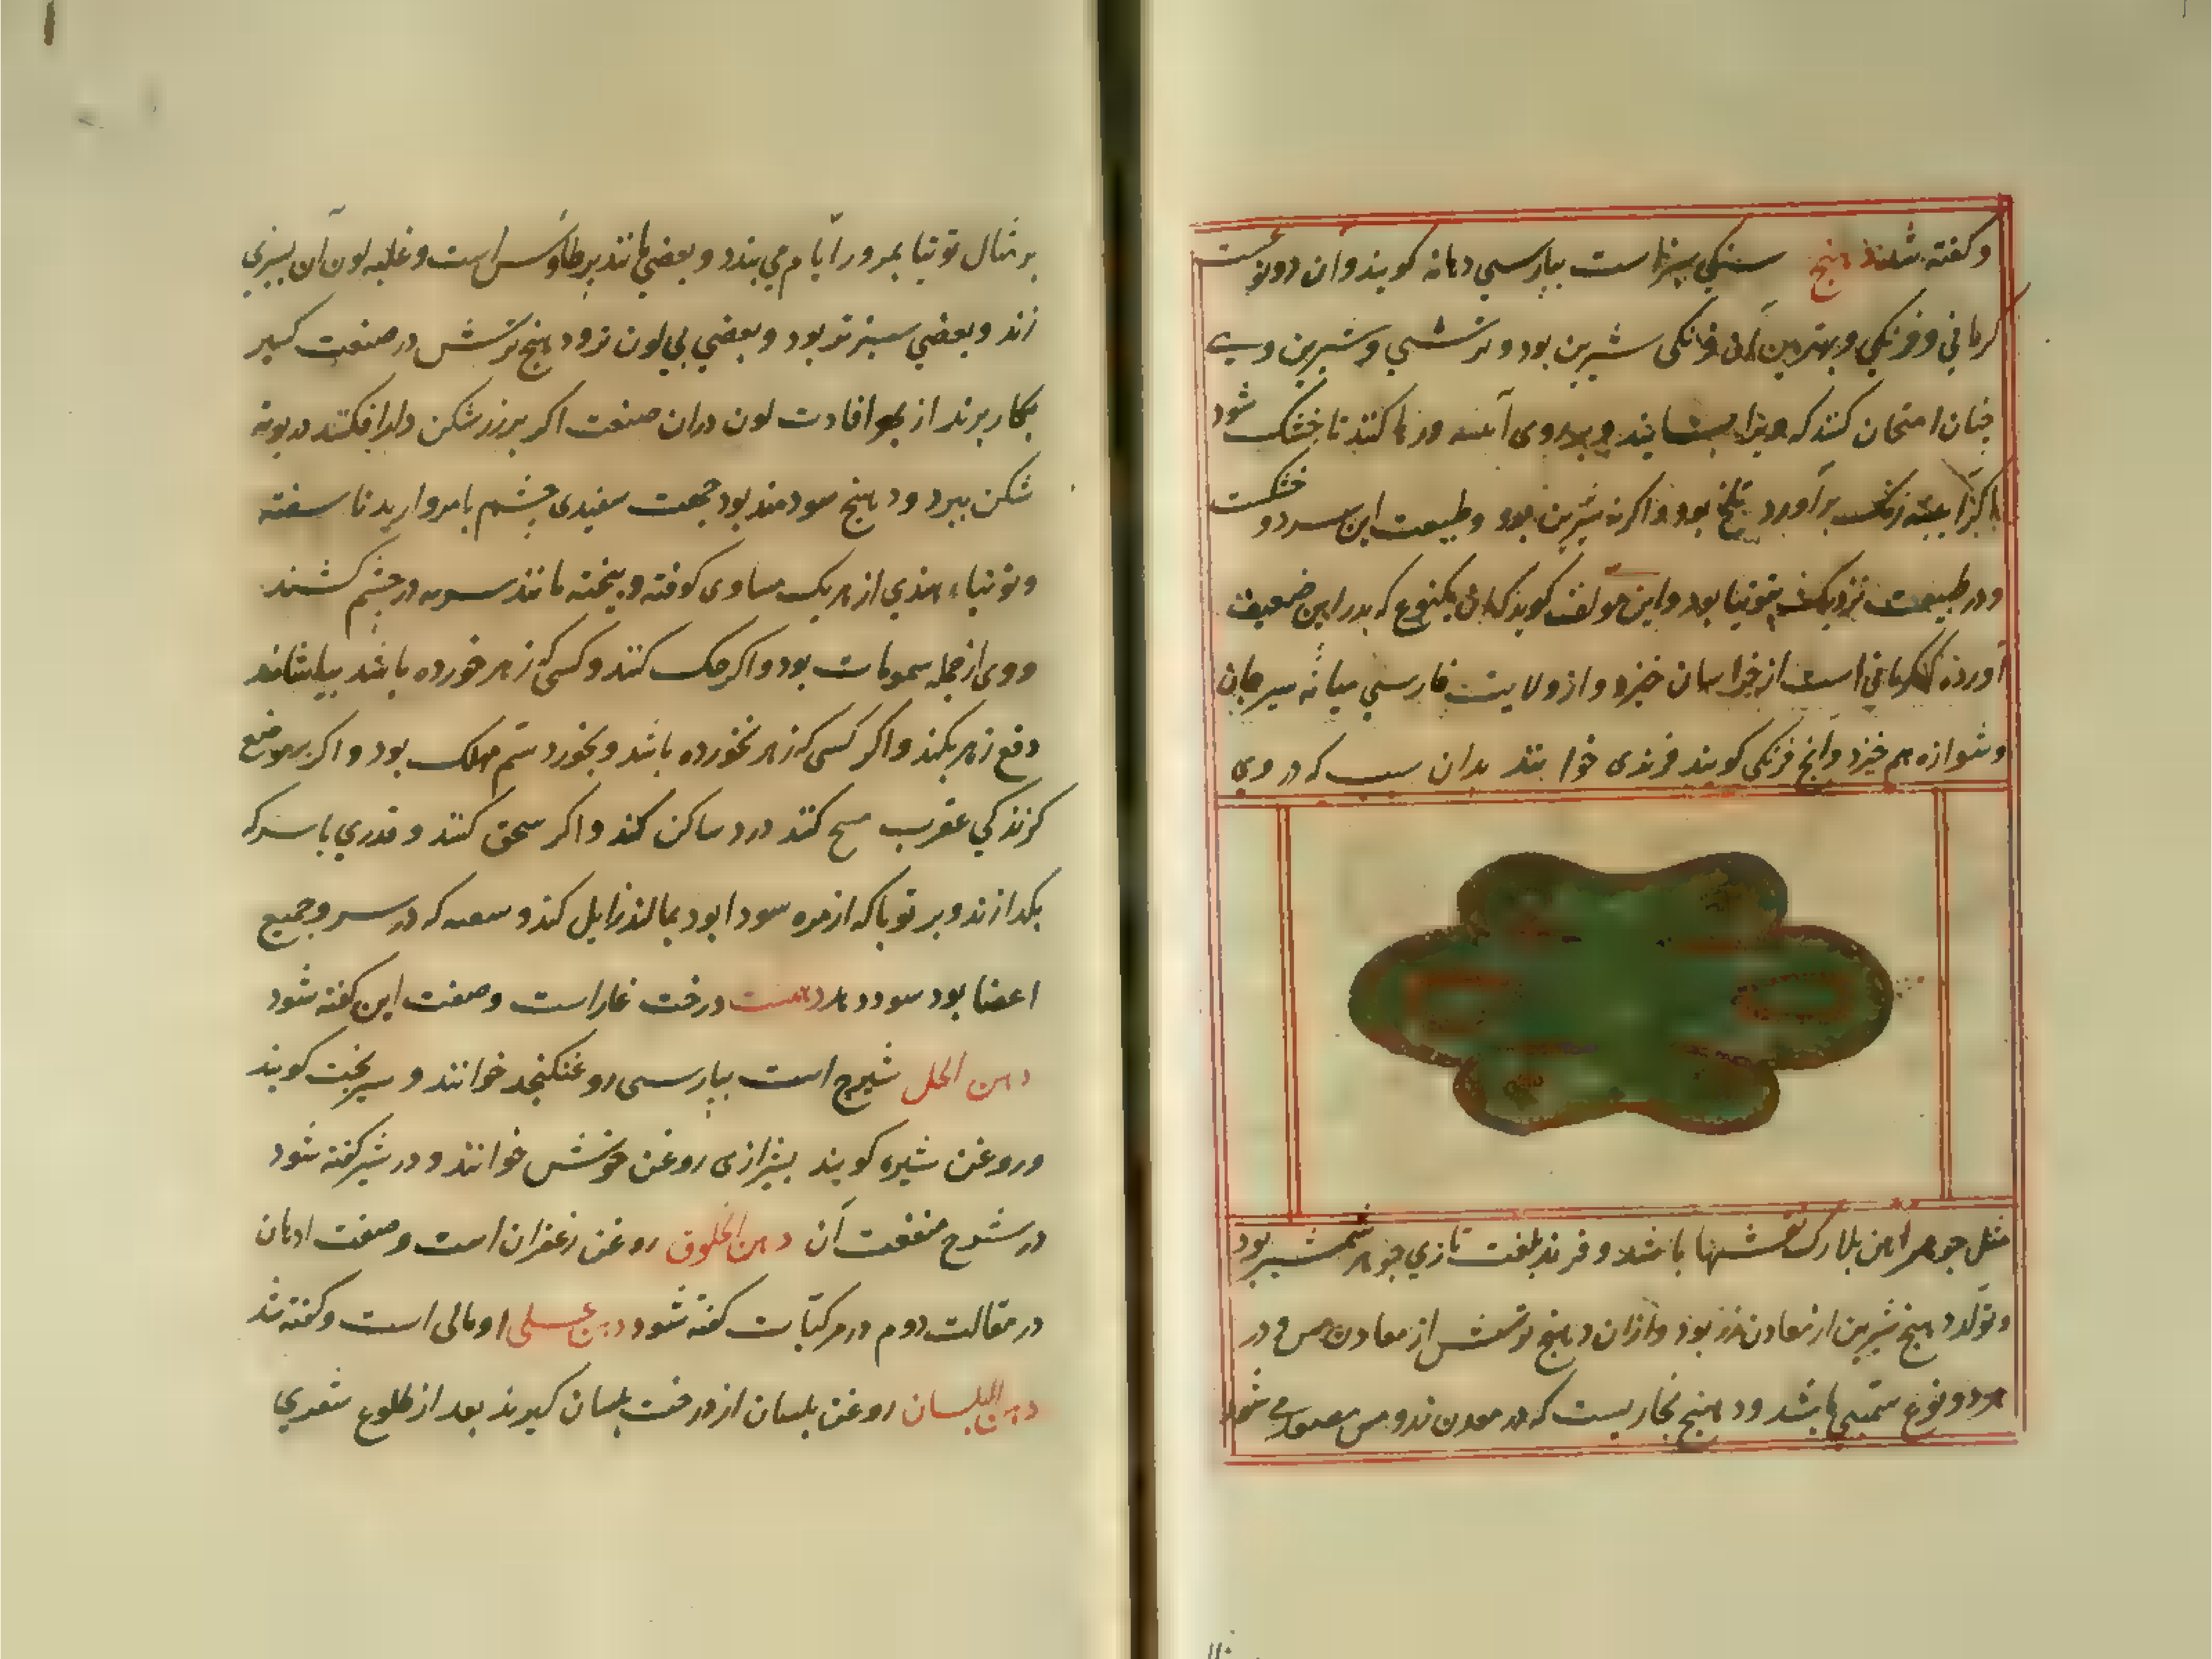 و کفته شد دهنج سنکی سبز است بپارسی دهانه کویند و آن دو نوعست
کرمانی و فرنکی و بهترین آن فرنکی شیرین بود و ترشی و شیرین وی
چنان امتحان کنند که ویرا بسایند و بر روی آینه و رها کنند تا خشک شود
اکر زنک برآورد تلخ بود و اکر نه شیرین بود و طبیعت این سرد و خشکست
و در طبیعت نزدیک بتوتیا بود و این مولف کوید که آن یکنوع که بدر این ضعیف
آورده کرمانی است از خراسان خیزد و از ولایت فارسی میانه سیرجان
و شوازه هم خیزد و آنچ فرنکی کویند فرندی خوانند بدان سبب که در وی
مثل جوهر آهن بلارک نقشها باشد و فرند بلغت تازی جوهر شمشیر بود
و تولد دهنج شیرین از معادن زر بود و ازان دهنج ترش از معادن مس و در
هر دو نوع سمیتی باشد و دهنج بخاریست که در معدن زر و مس می شود
بر مثال توتیا بمرور ایام می بندد و بعضی مانند پر طاوس است و غلبه لون آن بسبزی
زند و بعضی سبزتر بود و بعضی بی لون تر و دهنج ترش در صنعت کبیر
بکار برند از بهر افادت لون دران صنعت اکر بر زر شکن دار افکنند در بوته
شکن ببرد و دهنج سودمند بود جهت سفیدی چشم با مروارید نا سفته
و توتیاء هندی از هر یک مساوی کوفته و بیخته مانند سرمه در چشم کشند
و وی از جمله سمومات بود و اکر حک کنند و کسی که زهر خورده باشد بیاشامد
دفع زهر بکند و اکر کسی که زهر نخورده باشد و بخورد سم مهلک بود و اکر بر موضع
کزندکی عقرب مسح کنند درد ساکن کند و اکر سحق کنند و قدری با سرکه
بکدازند و بر قوبا که از مره سودا بود بمالند زایل کند و سعفه که در سر و جمیع
اعضا بود سود دهد دهمست درخت غار است و صفت این کفته شود
دهن الحل شیرج است بپارسی روغن کنجد خوانند و سیربخت کویند
و روغن شیره کویند بشیرازی روغن خوش خوانند و در شیر کفته شود
در شرح منفعت آن دهن الخلوق روغن زعفران است و صفت ادهان
در مقالت دوم در مرکبات کفته شود دهن عسلی اومالی است و کفته شد
دهن البلسان روغن بلسان از درخت بلسان کیرند بعد از طلوع شعری